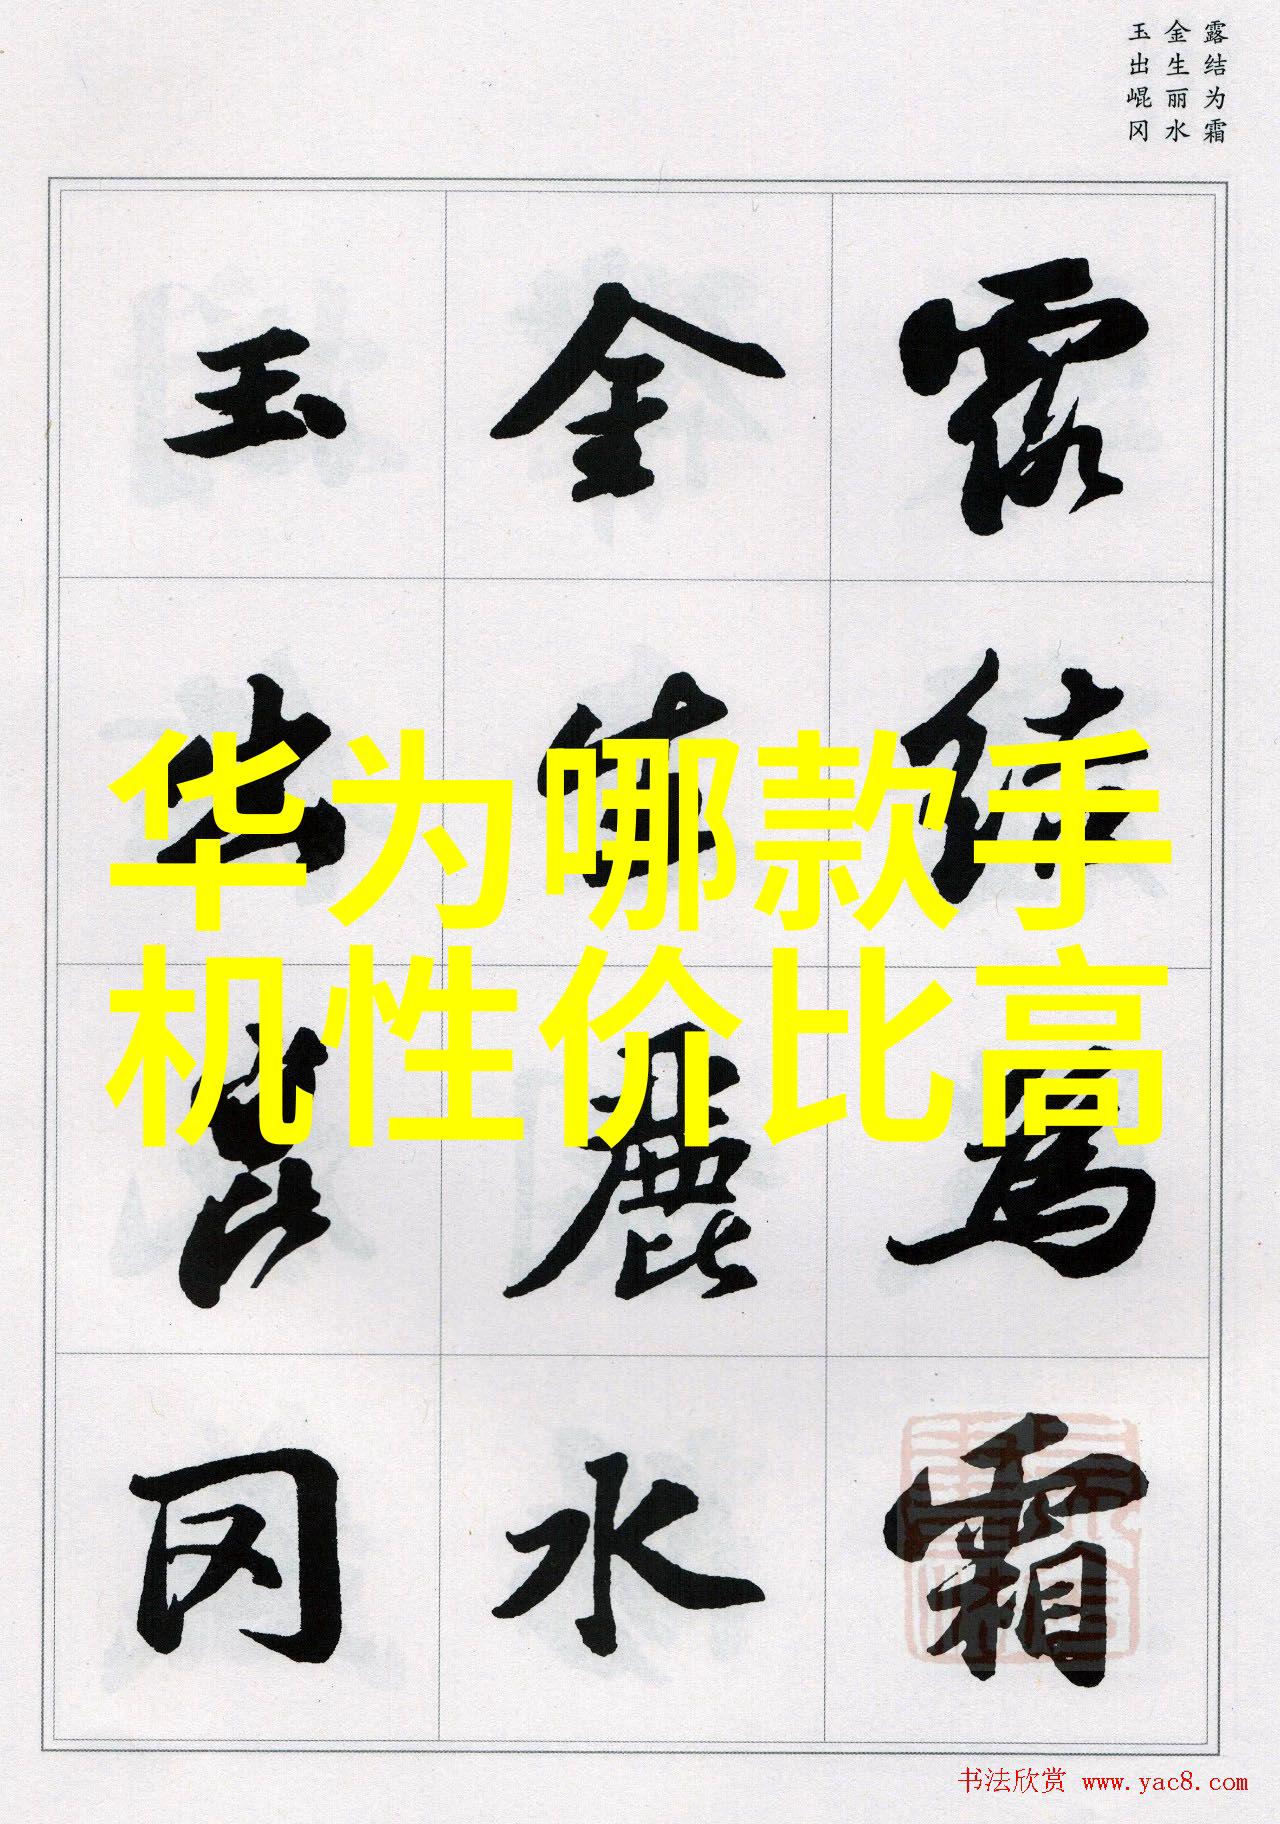 露结为霜
金生丽水
玉出崐冈
露結為霜
金生麗水
玉出崑冈
华为哪款手
机性价比高
书法欣赏 www.yac8.com